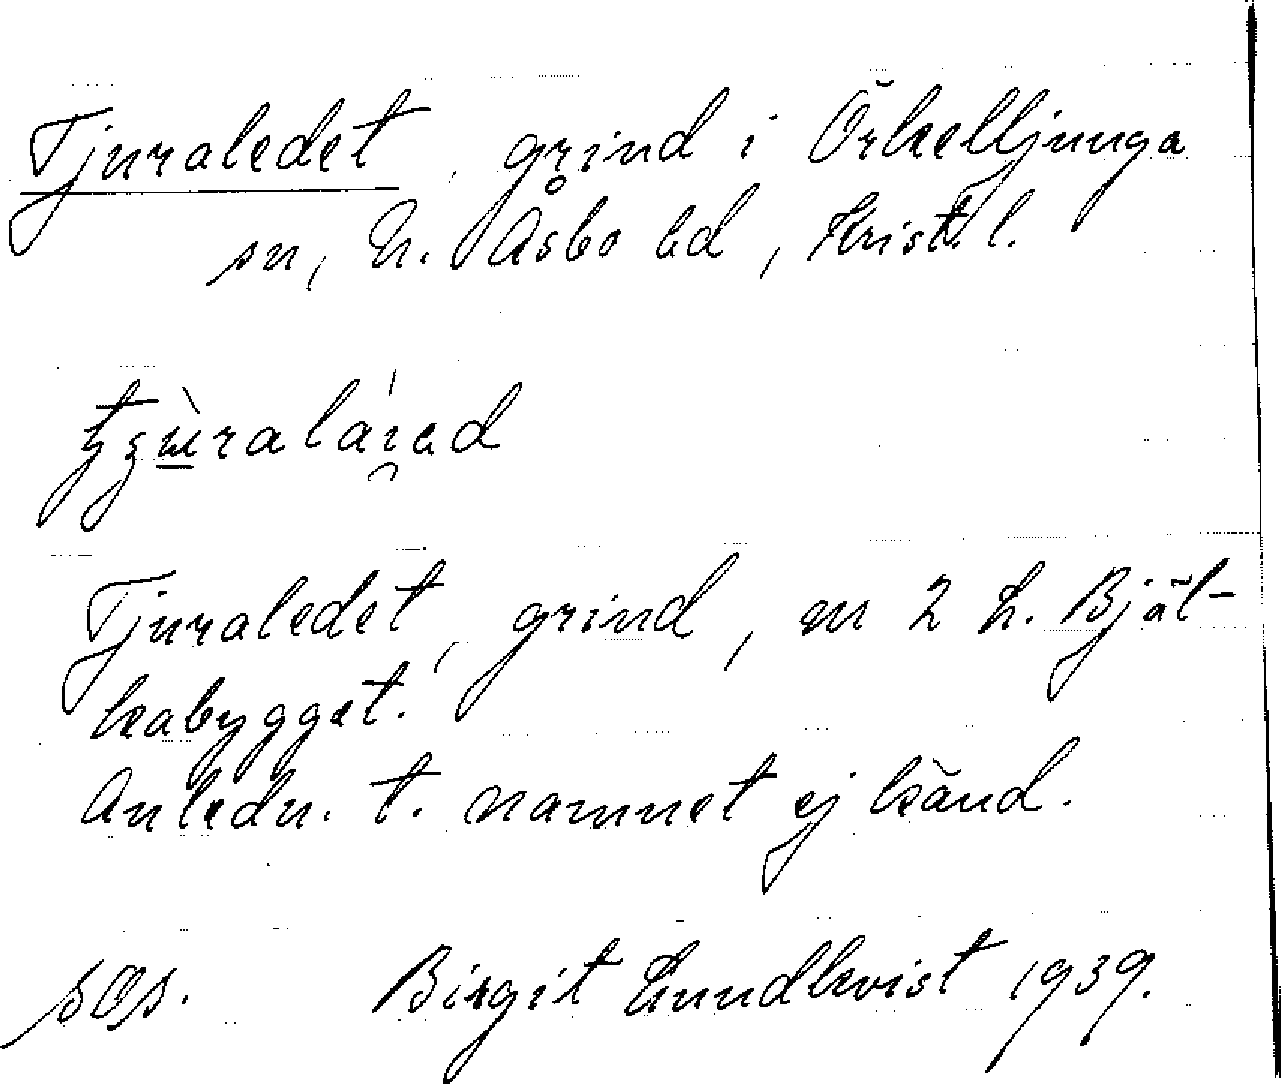 Tjuraledet, grind i Örkelljunga
sn, N. Åsbo hd, Krist. l.
Tjuraledet, grind, m 2 h. Bjäl-
kabygget.
Anledn. t. namnet ej känd.
Birgit Lundkvist 1939.